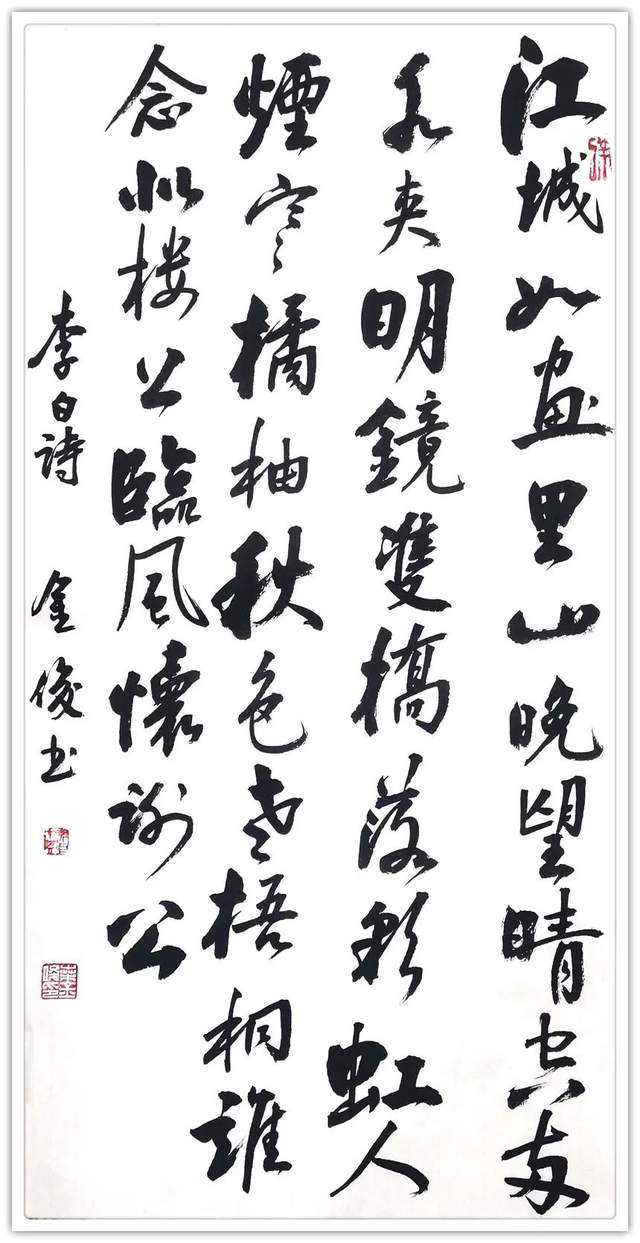 江城如画里山晚望晴空两
水夹明鏡雙橋落彩虹人
煙寒橘柚秋色老梧桐誰
念北楼上臨風懷謝公
李白詩 金俊书